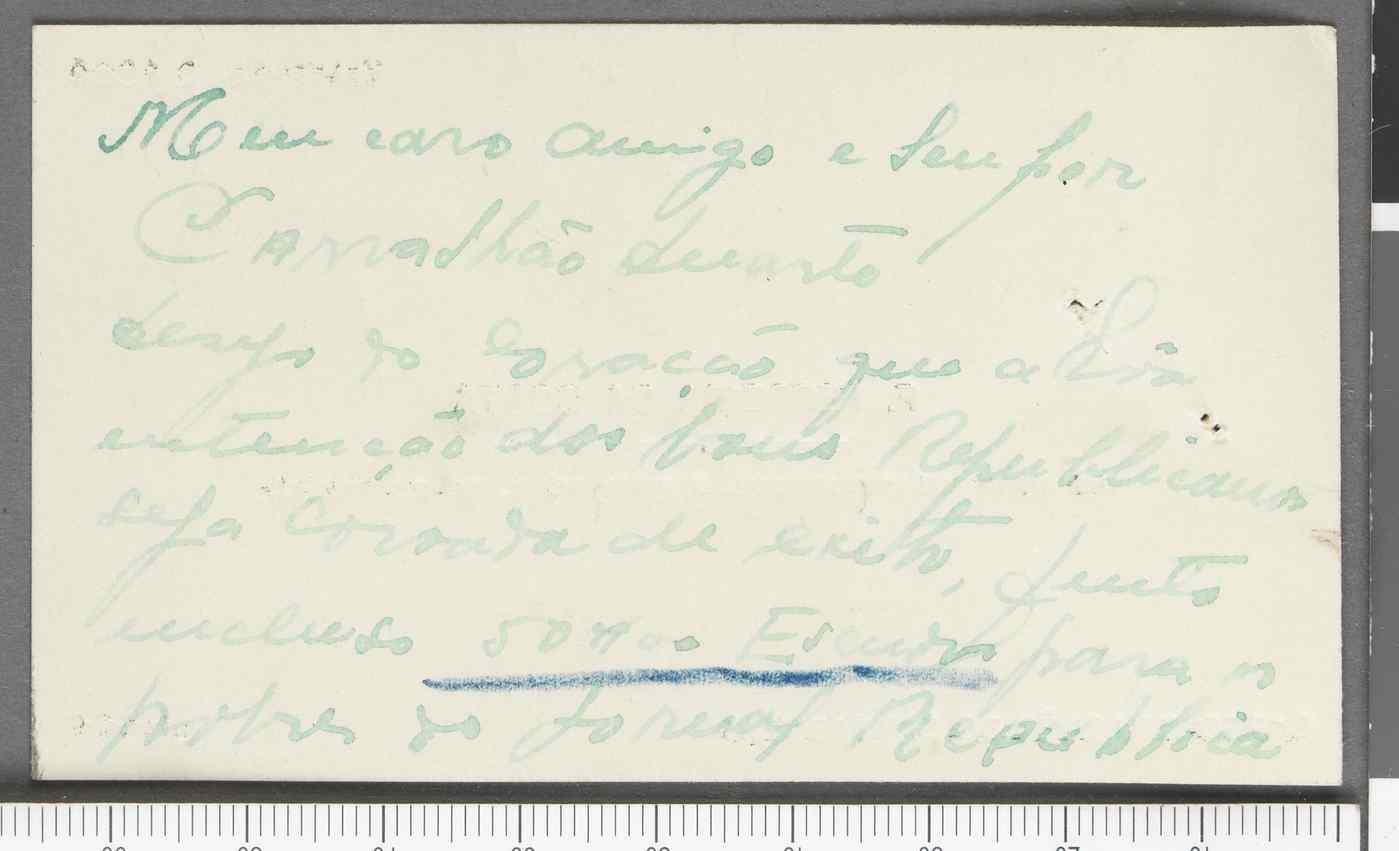 Meu caro amigo e Senhor
Carvalhão Duarte
Dezejo do Coração que a bôa
entenção dos bons Republicanos
seja Coroada de exito, Junto
incluso 50$00 Escudos para os
pobres do Jornal Republica